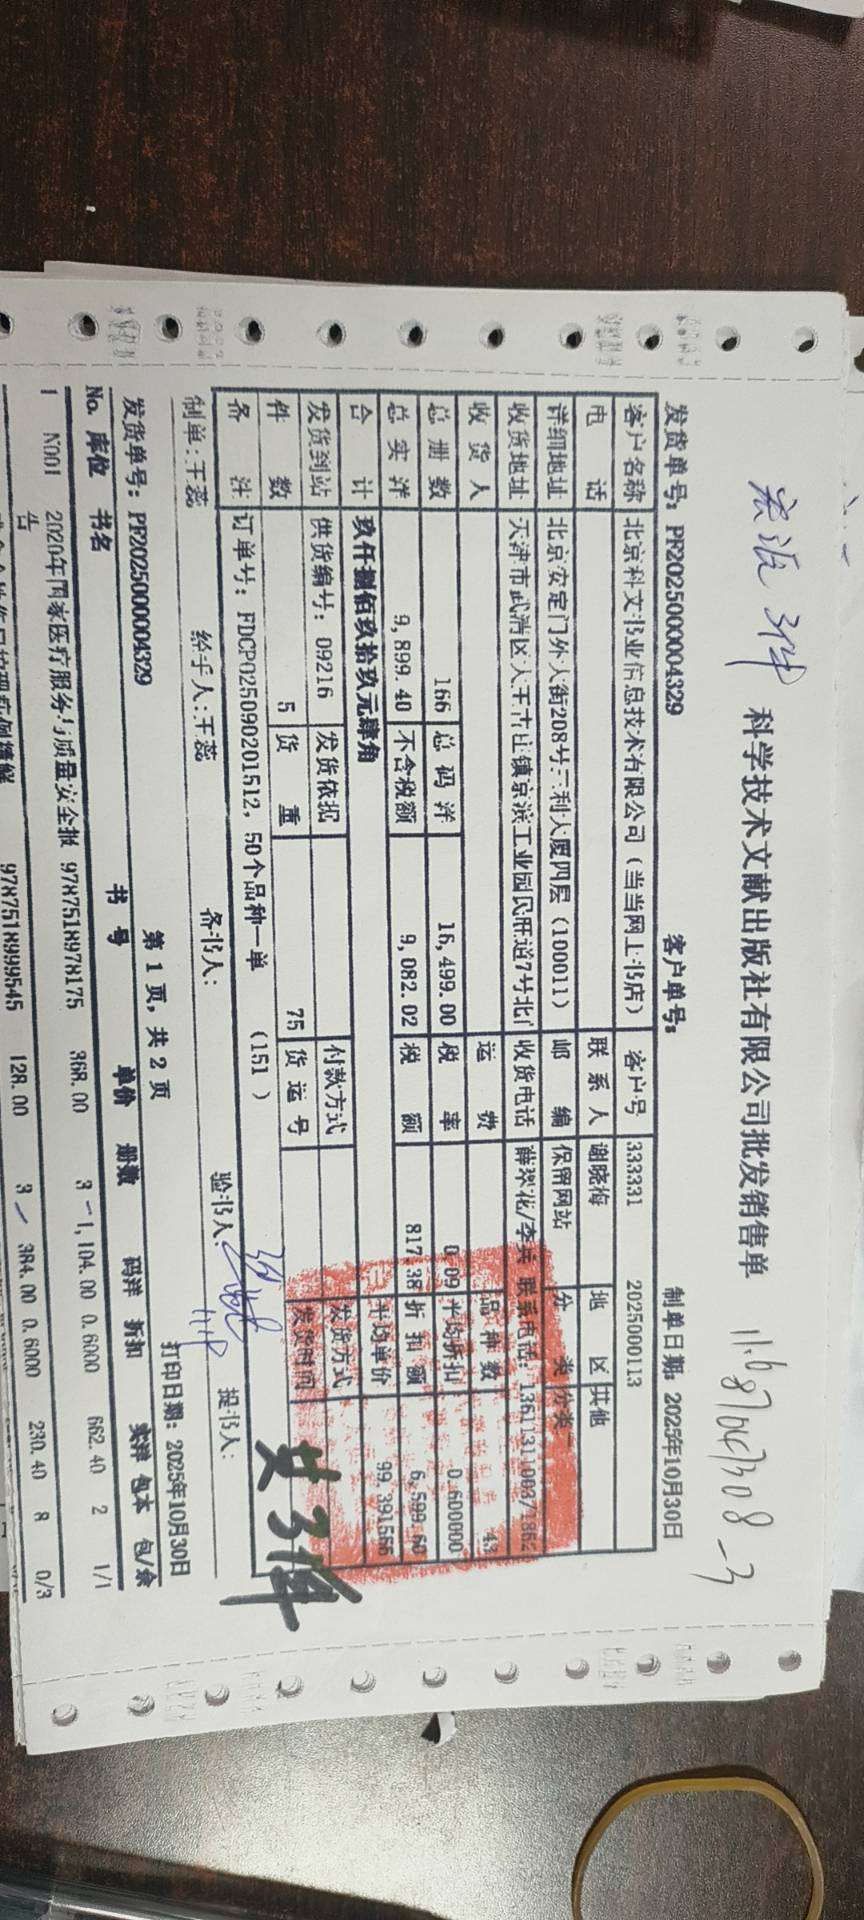 宏派 3件 科学技术文献出版社有限公司批发销售单 11.6 87047308-3
发货单号: PF2025000004329 客户单号: 制单日期: 2025年10月30日
客户名称 北京科文书业信息技术有限公司（当当网上书店） 客户号 333331 2025000113
电 话 联系人 谢晓梅 地 区 其他
详细地址 北京安定门外大街208号三利大厦四层（100011） 邮 编 保留网站 分 类 分类一
收货地址 天津市武清区大王古庄镇京滨工业园民旺道7号北门 收货电话 薛翠花/李兵 联系电话:
收 货 人 运 费 品 种 数 43
总 册 数 166 总 码 洋 16,499.00 税 率 0.09 平均折扣 0.600000
总 实 洋 9,899.40 不含税额 9,082.02 税 额 817.38 折 扣 额 6,599.60
合 计 玖仟捌佰玖拾玖元肆角 平均单价 99.391566
发货到站 供货编号: 09216 发货依据 付款方式 发货方式
件 数 5 货 重 75 货 运 号 发货时间
备 注 订单号: FDCP025090201512, 50个品种一单 (151 )
共3件
制单:王蕊 经手人:王蕊 备书人: 验书人: 提书人:
第 1 页, 共 2 页 打印日期: 2025年10月30日
发货单号: PF2025000004329
No. 库位 书名 书 号 单价 册数 码洋 折扣 实洋 包本 包/余
1 N001 2020年国家医疗服务与质量安全报 9787518978175 368.00 3 1,104.00 0.6000 662.40 2 1/1
告
9787518999545 128.00 3 384.00 0.6000 230.40 8 0/3